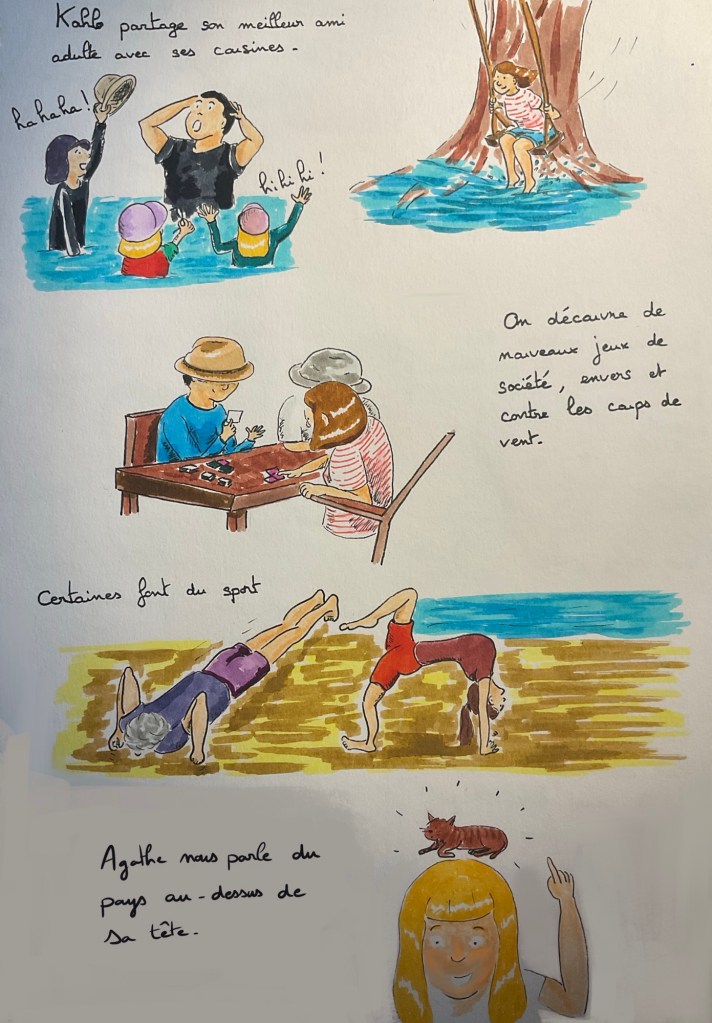 Kahlo partage son meilleur ami
adulte avec ses cousines.
hahaha!
hihihi!
On découvre de
nouveaux jeux de
société, envers et
contre les coups de
vent.
Certaines font du sport
Agathe nous parle du
pays au-dessus de
sa tête.